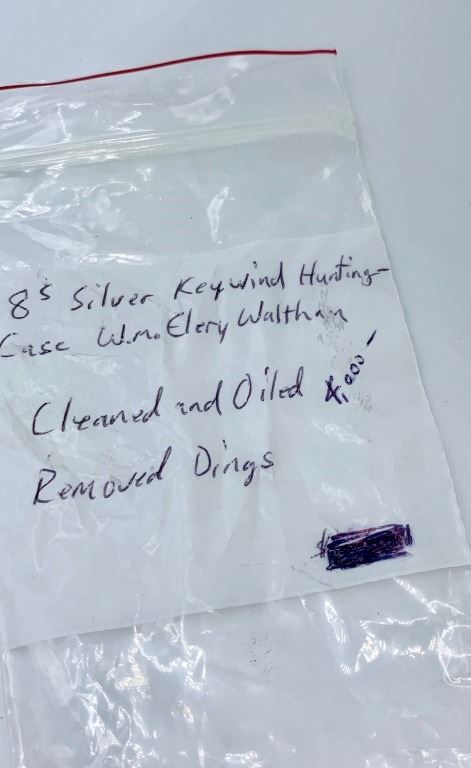 8s Silver Keywind Hunting-
Case W.m. Elery Walthan
Cleaned and Oiled
Removed Dings